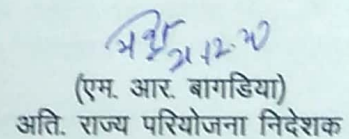 21.12.20
(एम. आर. बागडिया)
अति. राज्य परियोजना निदेशक